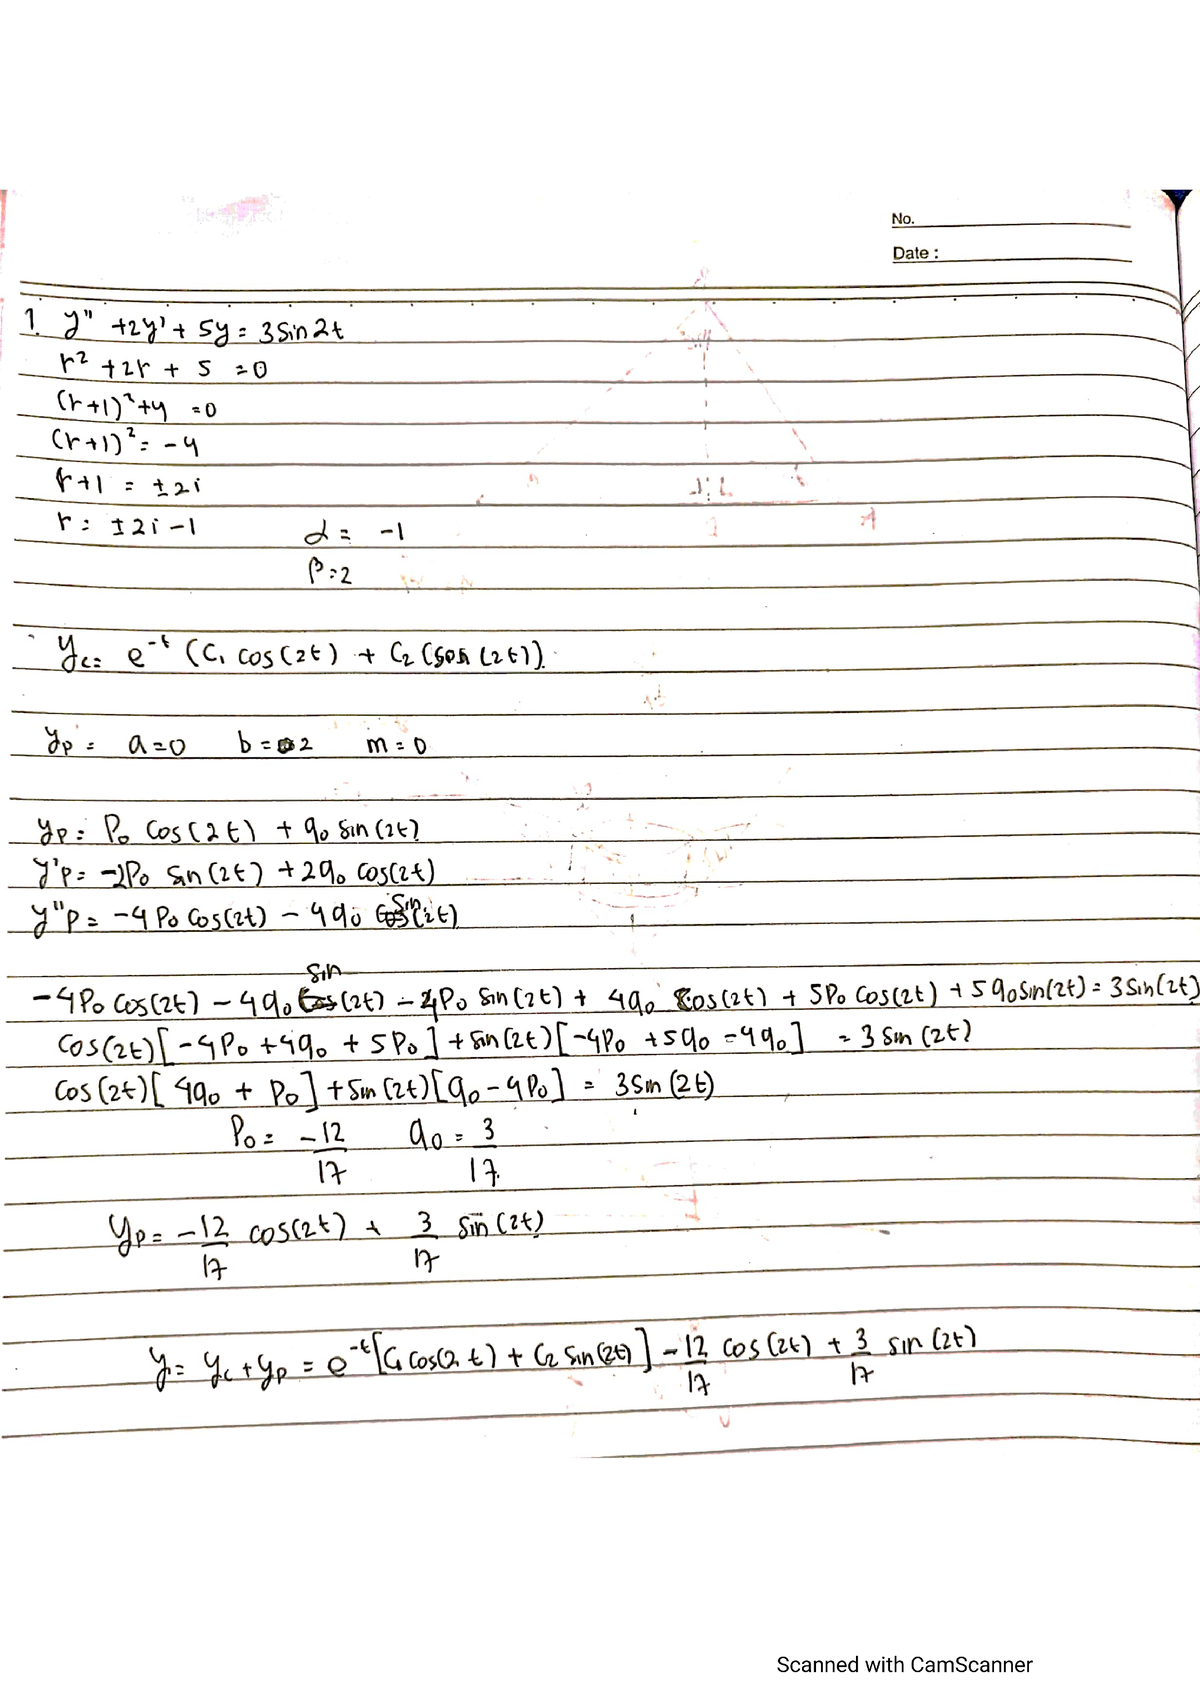 No.
Date :
1. y" +2y' + 5y = 3 Sin 2t
r² + 2r + 5 = 0
(r+1)² + 4 = 0
(r+1)² = -4
r+1 = ± 2i
r = ± 2i - 1 α = -1
β = 2
yc = e^-t (C₁ cos (2t) + C₂ (sin (2t)).
yp = a=0 b = 2 m = 0
yp = P₀ Cos (2t) + q₀ Sin (2t)
y'p = -2P₀ Sin (2t) + 2q₀ Cos(2t)
y"p = -4 P₀ Cos(2t) - 4q₀ Sin (2t)
-4P₀ Cos(2t) - 4q₀ Sin (2t) - 4P₀ Sin (2t) + 4q₀ Cos (2t) + 5P₀ Cos(2t) + 5q₀ Sin(2t) = 3 Sin(2t)
Cos(2t) [-4P₀ + 4q₀ + 5P₀] + Sin (2t) [-4P₀ + 5q₀ - 4q₀] = 3 Sin (2t)
Cos (2t) [4q₀ + P₀] + Sin (2t) [q₀ - 4P₀] = 3 Sin (2t)
P₀ = -12/17 q₀ = 3/17.
yp = -12/17 cos(2t) + 3/17 Sin (2t)
y = yc + yp = e^-t [C₁ Cos(2t) + C₂ Sin(2t)] - 12/17 Cos (2t) + 3/17 Sin (2t)
Scanned with CamScanner